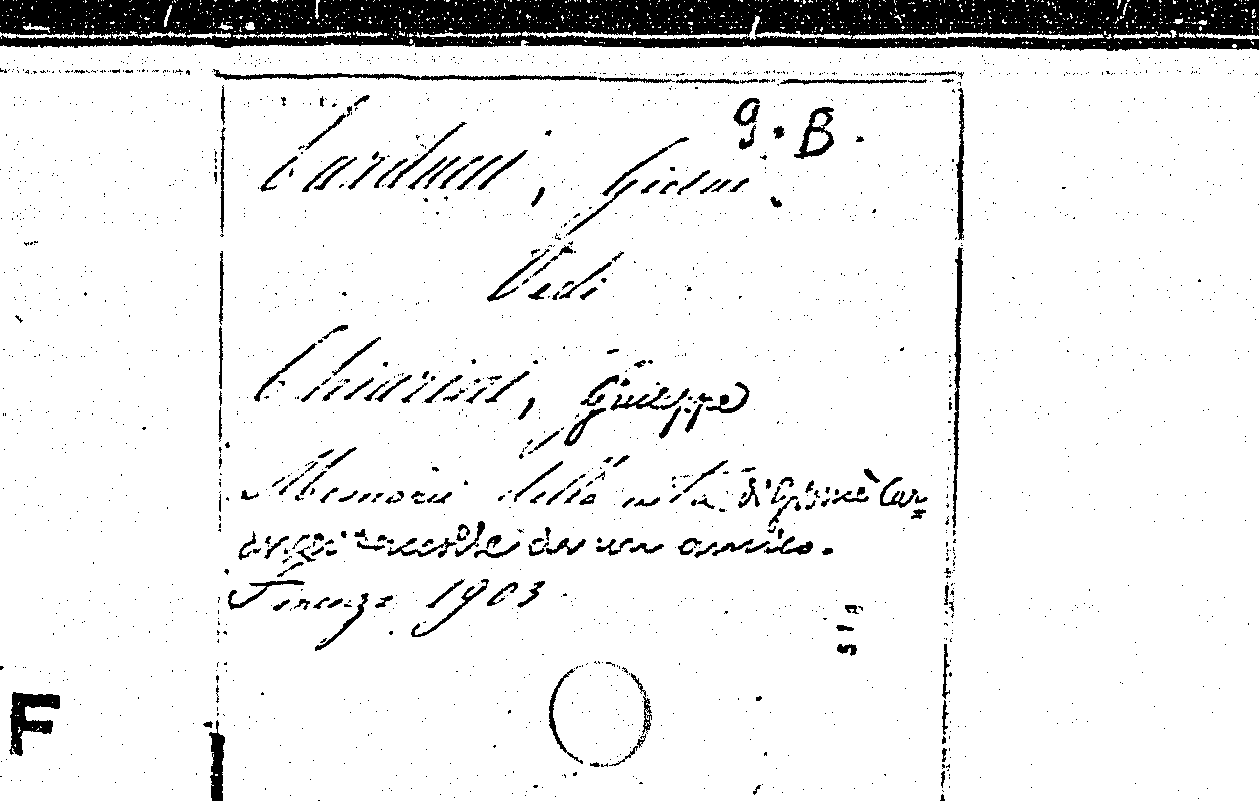 9. B.
Carducci, Giosuè.
Vedi
Chiarini, Giuseppe
Memorie della vita di Giosuè Car=
ducci raccolte da un amico.
Firenze 1903
F